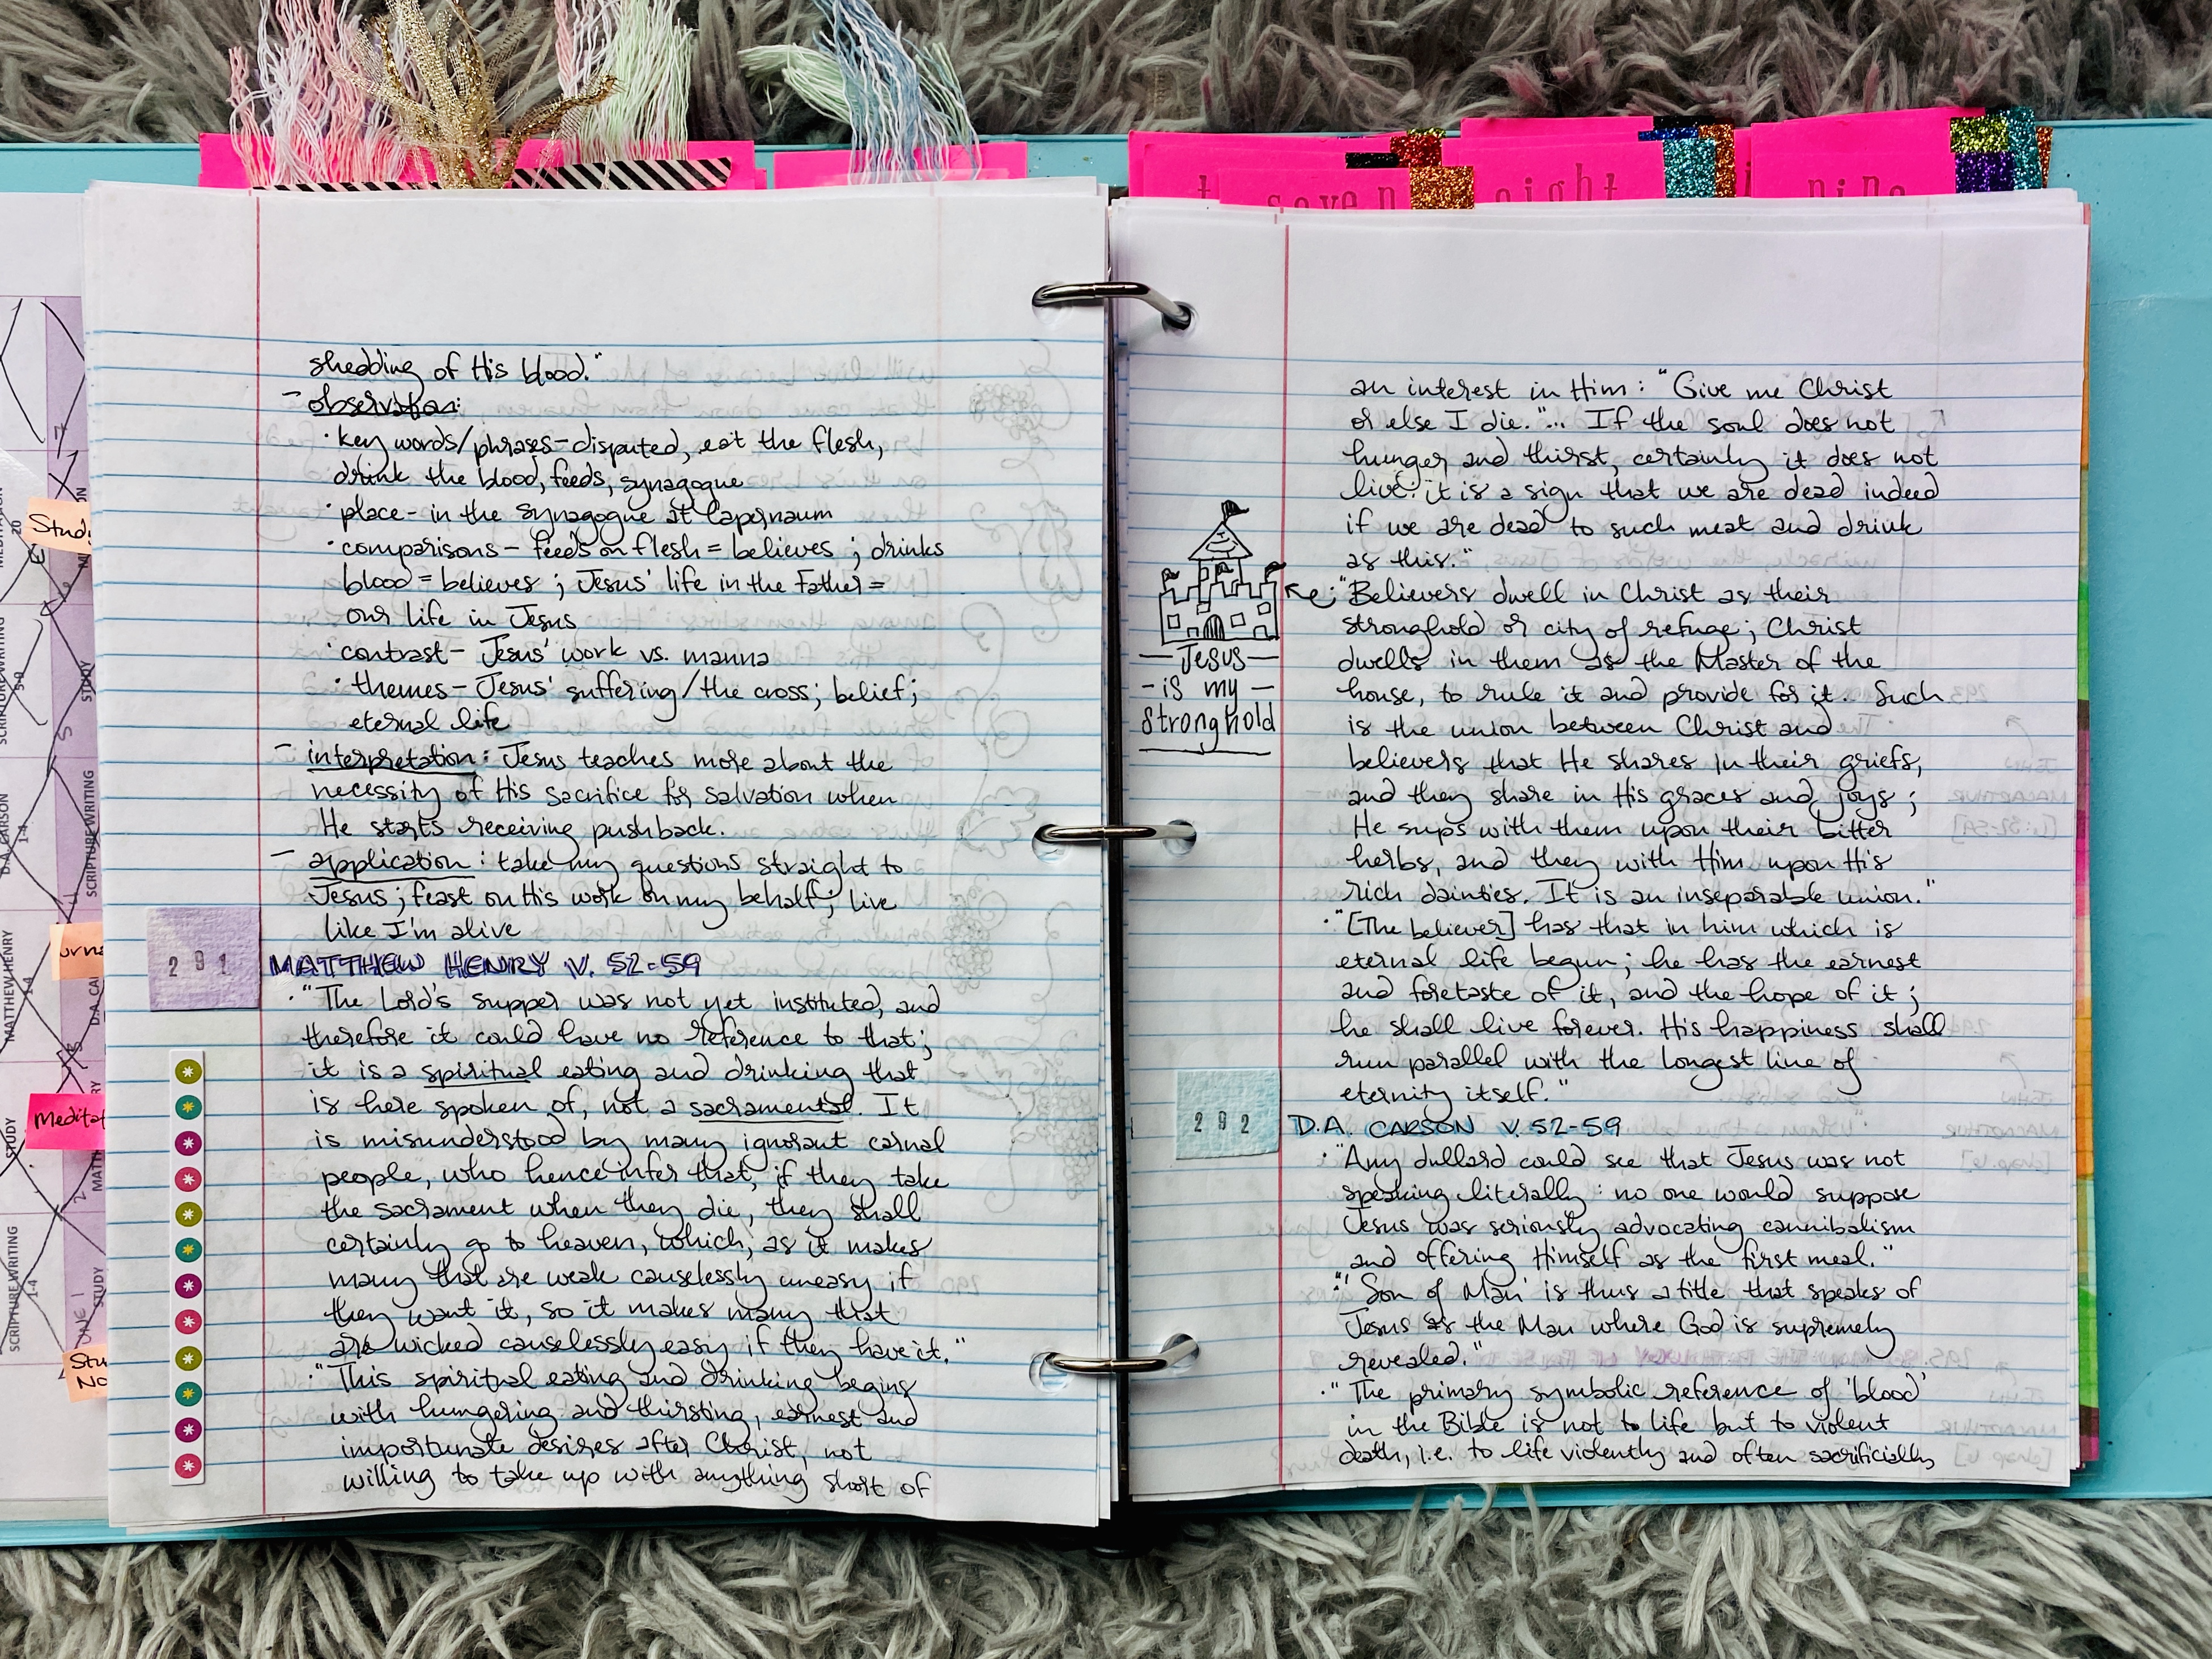 seven
eight
nine
shedding of His blood."
- observation:
· key words/phrases - disputed, eat the flesh,
drink the blood, feeds, synagogue
· place - in the synagogue at Capernaum
· comparisons - feeds on flesh = believes ; drinks
blood = believes ; Jesus' life in the Father =
our life in Jesus
· contrast - Jesus' work vs. manna
· themes - Jesus' suffering/the cross; belief;
eternal life
- interpretation: Jesus teaches more about the
necessity of His sacrifice for salvation when
He starts receiving pushback.
- application: take my questions straight to
Jesus; feast on His work on my behalf; live
like I'm alive
291
MATTHEW HENRY V. 52-59
· "The Lord's supper was not yet instituted, and
therefore it could have no reference to that;
it is a spiritual eating and drinking that
is here spoken of, not a sacramental. It
is misunderstood by many ignorant carnal
people, who hence infer that, if they take
the sacrament when they die, they shall
certainly go to heaven, which, as it makes
many that are weak causelessly uneasy if
they want it, so it makes many that
are wicked causelessly easy if they have it."
· "This spiritual eating and drinking begins
with hungering and thirsting, earnest and
importunate desires after Christ, not
willing to take up with anything short of
an interest in Him: "Give me Christ
or else I die."... If the soul does not
hunger and thirst, certainly it does not
live: it is a sign that we are dead indeed
if we are dead to such meat and drink
as this."
· "Believers dwell in Christ as their
stronghold or city of refuge; Christ
dwells in them as the Master of the
house, to rule it and provide for it. Such
is the union between Christ and
believers that He shares in their griefs,
and they share in His graces and joys;
He sups with them upon their bitter
herbs, and they with Him upon His
rich dainties. It is an inseparable union."
- Jesus -
- is my -
stronghold
· "[The believer] has that in him which is
eternal life begun; he has the earnest
and foretaste of it, and the hope of it;
he shall live forever. His happiness shall
run parallel with the longest line of
eternity itself."
292
D.A. CARSON V. 52-59
· "Any dullard could see that Jesus was not
speaking literally: no one would suppose
Jesus was seriously advocating cannibalism
and offering Himself as the first meal."
· "'Son of Man' is thus a title that speaks of
Jesus as the Man where God is supremely
revealed."
· "The primary symbolic reference of 'blood'
in the Bible is not to life but to violent
death, i.e. to life violently and often sacrificially
SCRIPTURE WRITING
STUDY
MATTHEW HENRY
D.A. CARSON
SCRIPTURE WRITING
STUDY
SCRIPTURE WRITING
STUDY